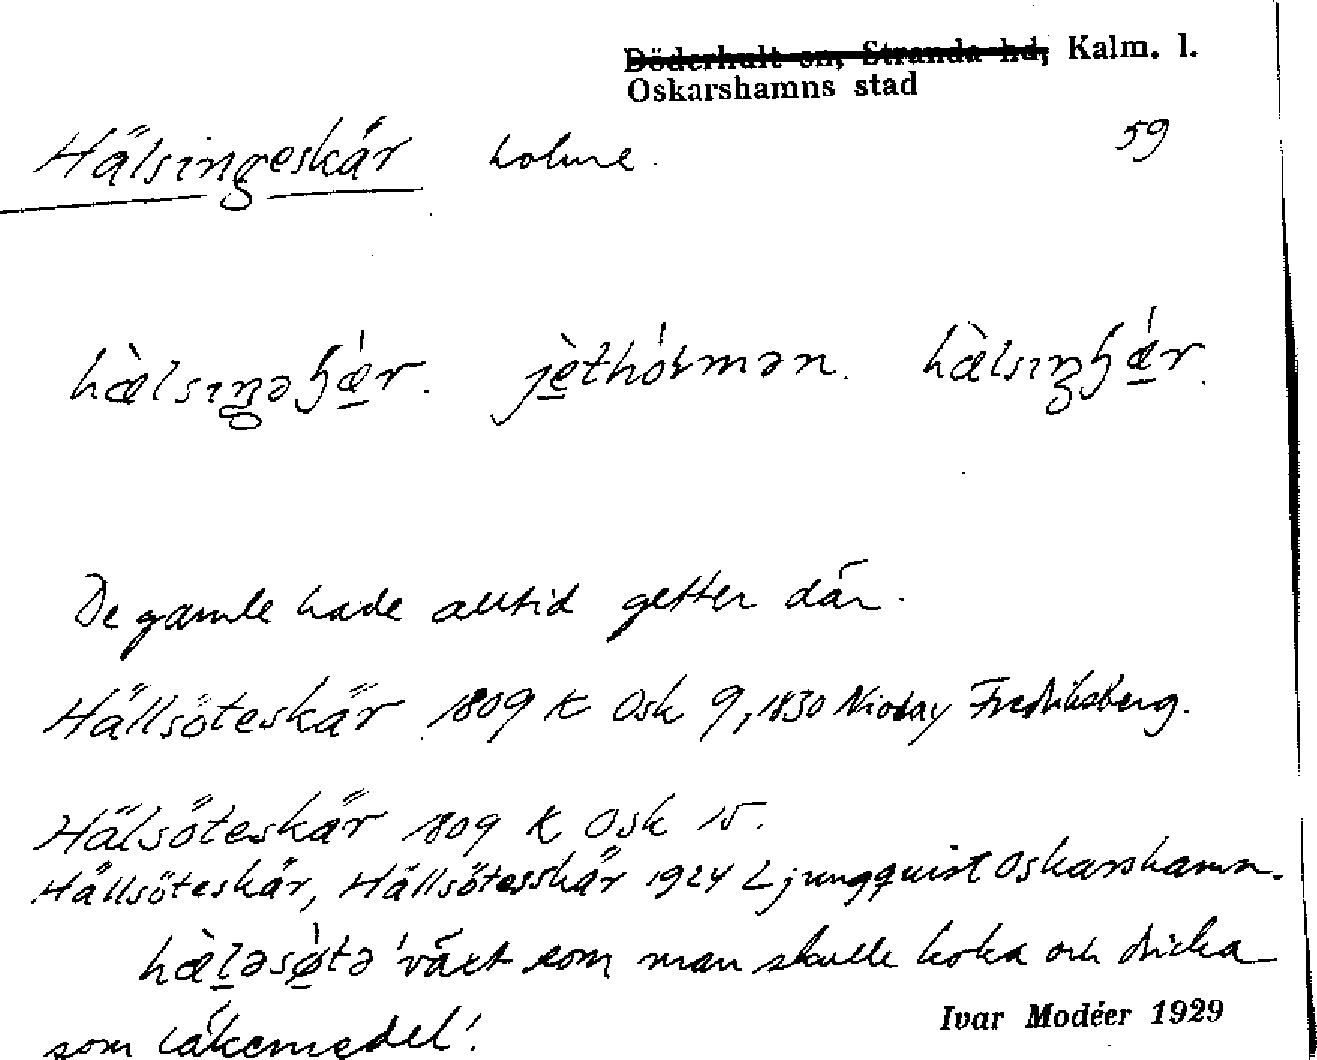 Döderhult sn, Stranda hd, Kalm. l.
Oskarshamns stad
Hälsingeskär holme. 59
De gamle hade alltid getter där.
Hällsöteskär 1809 K Osk 9, 1830 Fredriksberg.
Hälsöteskär 1809 K Osk 15.
Hällsöteskär, Hällsötesskär 1924 Ljungquist Oskarshamn.
'växt som man skulle koka och dricka
som läkemedel'.
Ivar Modéer 1929